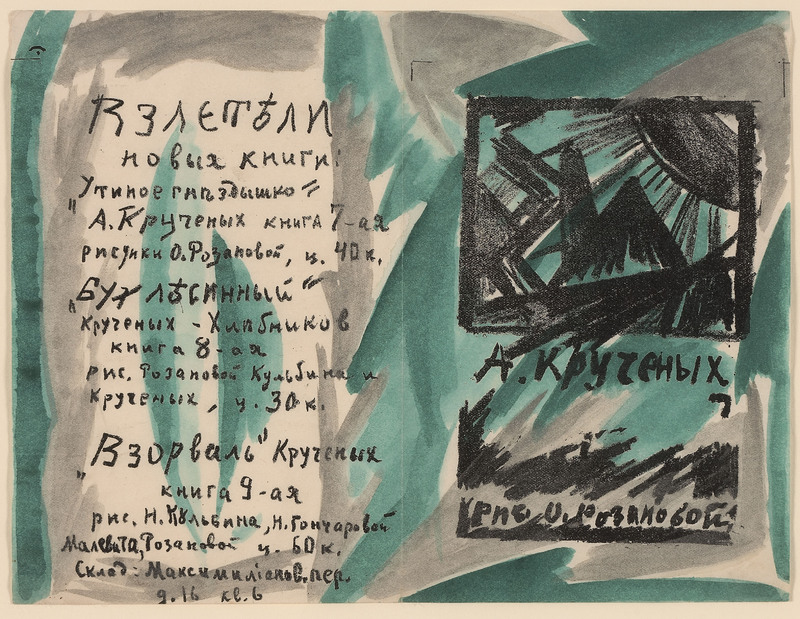 Взлетѣли
новыя книги:
"Утиное гнѣздышко"
А. Крученых книга 7-ая
рисунки О. Розановой, ц. 40 к.
"Бух лѣсинный"
Крученых - Хлѣбников
книга 8-ая
рис. Розановой Кульбина и
Крученых, ц. 30 к.
"Взорваль" Крученых
книга 9-ая
рис. Н. Кульбина, Н. Гончаровой
Малевича, Розановой ц. 60 к.
Склад: Максимиліанов. пер.
д. 16 кв. 6
А. Крученых
рис О. Розановой